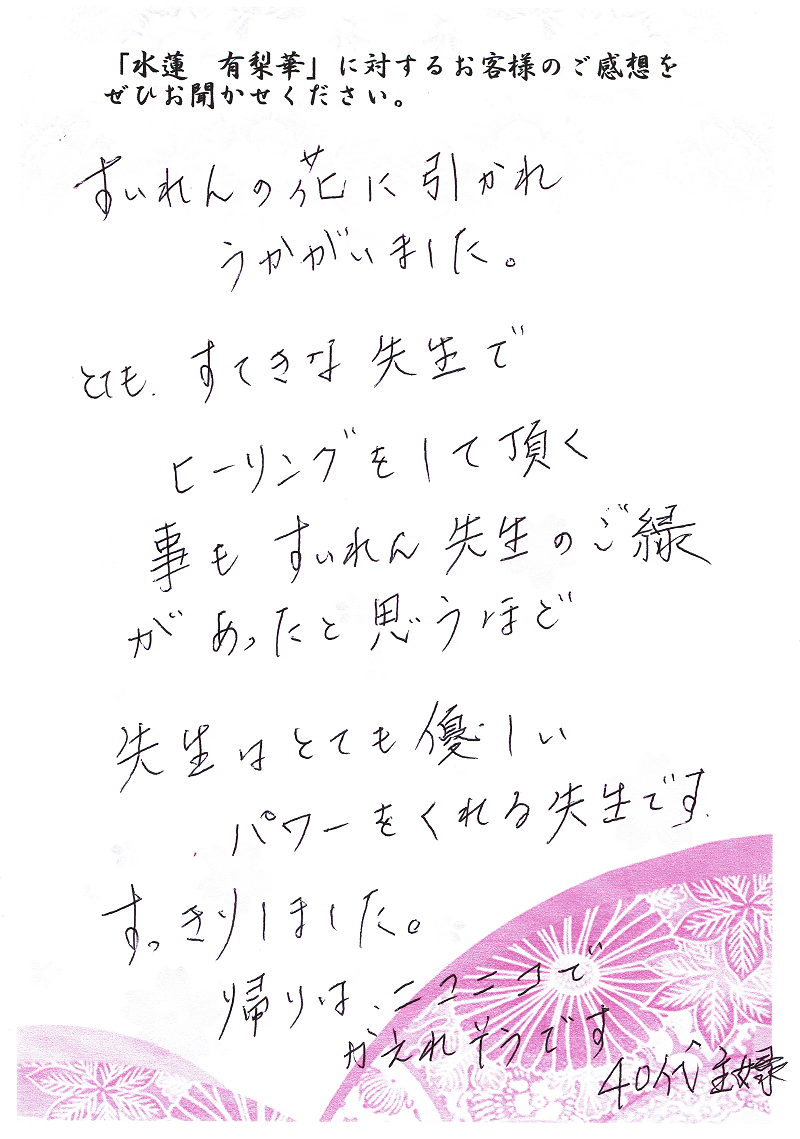 「水蓮　有梨華」に対するお客様のご感想を
ぜひお聞かせください。
すいれんの花に引かれ
うかがいました。
とても、すてきな先生で
ヒーリングをして頂く
事もすいれん先生のご縁
があったと思うほど
先生はとても優しい
パワーをくれる先生です。
すっきりしました。
帰りは、ニコニコで
かえれそうです
40代主婦